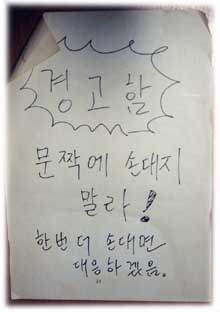 경고함
문짝에 손대지
말라!
한번 더 손대면
대응하겠음.